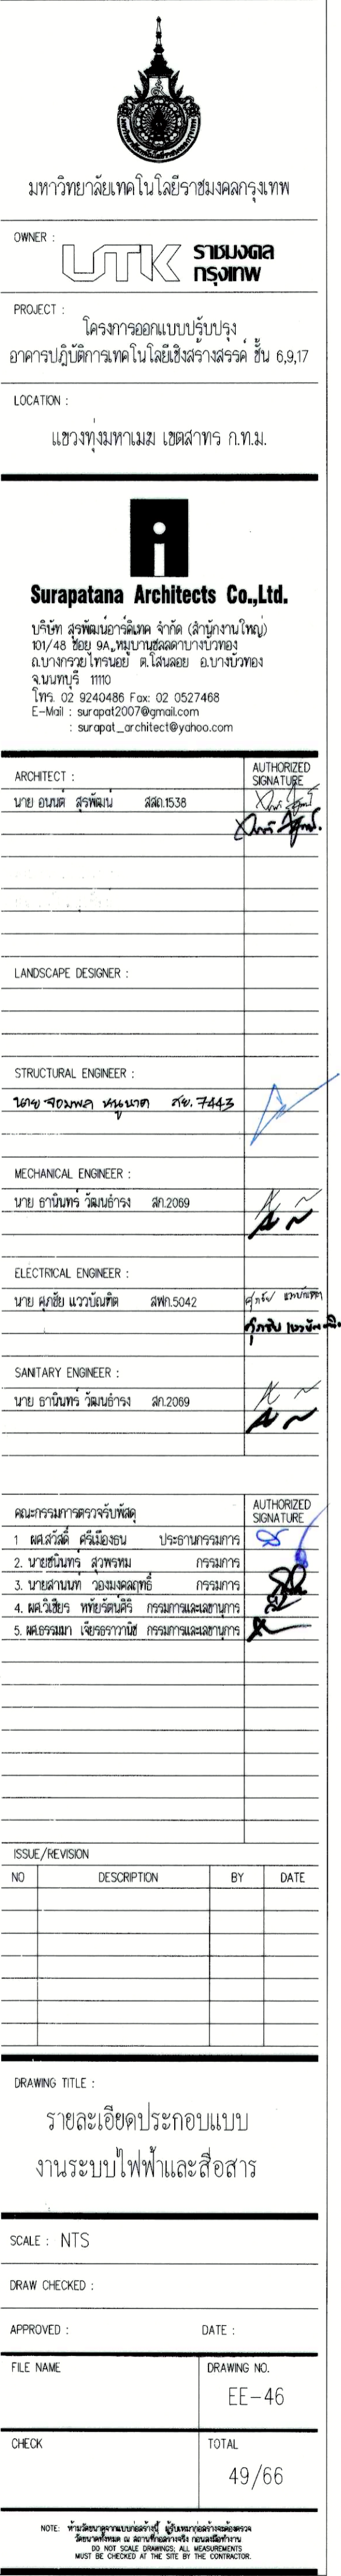 มหาวิทยาลัยเทคโนโลยีราชมงคลกรุงเทพ
OWNER :
UTK ราชมงคล
กรุงเทพ
PROJECT :
โครงการออกแบบปรับปรุง
อาคารปฏิบัติการเทคโนโลยีเชิงสร้างสรรค์ ชั้น 6,9,17
LOCATION :
แขวงทุ่งมหาเมฆ เขตสาทร ก.ท.ม.
Surapatana Architects Co.,Ltd.
บริษัท สุรพัฒน์อาร์คิเทค จำกัด (สำนักงานใหญ่)
101/48 ซอย 9A หมู่บ้านชลลดาบางบัวทอง
ถ.บางกรวย ไทรน้อย ต.โสนลอย อ.บางบัวทอง
จ.นนทบุรี 11110
โทร. 02 9240486 Fax: 02 0527468
E-Mail : surapat2007@gmail.com
: surapat_architect@yahoo.com
ARCHITECT :
AUTHORIZED
SIGNATURE
นาย อนนต์ สุรพัฒน์ สสถ.1538
LANDSCAPE DESIGNER :
STRUCTURAL ENGINEER :
นาย จอมพล หนูนาค สย. 7443
MECHANICAL ENGINEER :
นาย ธานินทร์ วัฒนธำรง สก.2069
ELECTRICAL ENGINEER :
นาย ศุภชัย แววบัณฑิต สฟก.5042
SANITARY ENGINEER :
นาย ธานินทร์ วัฒนธำรง สก.2069
คณะกรรมการตรวจรับพัสดุ
AUTHORIZED
SIGNATURE
1 ผศ.สวัสดิ์ ศรีเมืองธน ประธานกรรมการ
2. นายชนินทร์ สุวพรหม กรรมการ
3. นายสานนท์ ว่องมงคลฤทธิ์ กรรมการ
4. ผศ.วิเชียร หทัยรัตน์ศิริ กรรมการและเลขานุการ
5. ผศ.ธรรมมา เจียรธราวานิช กรรมการและเลขานุการ
ISSUE/REVISION
NO DESCRIPTION BY DATE
DRAWING TITLE :
รายละเอียดประกอบแบบ
งานระบบไฟฟ้าและสื่อสาร
SCALE : NTS
DRAW CHECKED :
APPROVED : DATE :
FILE NAME DRAWING NO.
EE-46
CHECK TOTAL
49/66
NOTE: ห้ามวัดขนาดจากแบบก่อสร้างนี้ ผู้รับเหมาก่อสร้างจะต้องตรวจ
วัดขนาดทั้งหมด ณ สถานที่ก่อสร้างจริง ก่อนลงมือทำงาน
DO NOT SCALE DRAWINGS; ALL MEASUREMENTS
MUST BE CHECKED AT THE SITE BY THE CONTRACTOR.